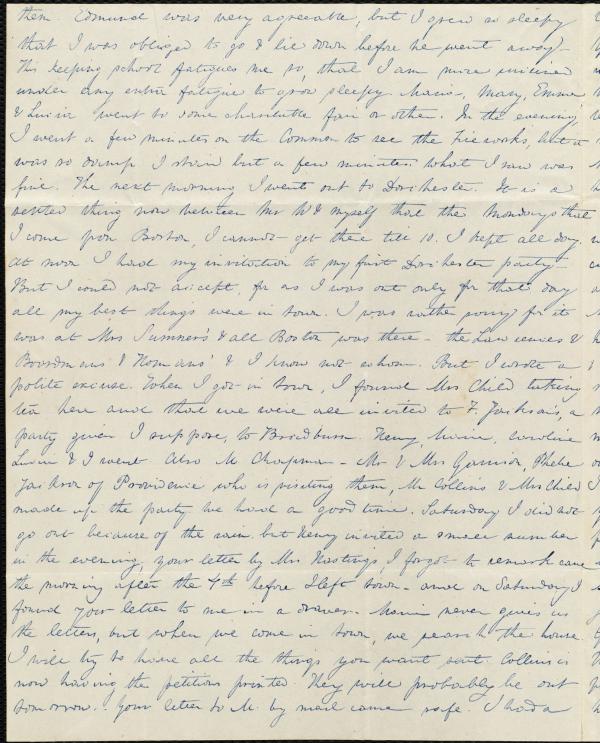 them. Edmund was very agreeable, but I grew so sleepy
that I was obliged to go & lie down before he went away.
This keeping school fatigues me so, that I am more inclined
under any extra fatigue to grow sleepy. Maria, Mary, Emma
& Lucia went to some charitable fair or other. In the evening
I went a few minutes on the Common to see the Fireworks, but it
was so damp I staid but a few minutes. What I saw was
fine. The next morning I went out to Dorchester. It is a
settled thing now between Mr W & myself that the Mondays that
I come from Boston, I cannot get there till 10. I kept all day.
At noon I had my invitation to my first Dorchester party.
But I could not accept, for as I was out only for that day
all my best things were in town. I was rather sorry for it
was at Mrs Sumner's & all Boston was there - the Lawrences &
Boardmans & Homans' & I know not whom. But I wrote a
polite excuse. When I got in town, I found Mrs Child taking
tea here and that we were all invited to F. Jackson's, a
party given I suppose, to Bradburn. Henry, Maria, Caroline
Lucia & I went. Also M Chapman - Mr & Mrs Garrison, Phebe
Jackson of Providence who is visiting them, Mr Collins & Mrs Child
made up the party. We had a good time. Saturday I did not
go out because of the rain but Henry invited a small number
in the evening. Your letter by Mrs Hastings, I forgot to remark came
the morning after the 4th before I left town - and on Saturday I
found your letter to me in a drawer. Maria never gives us
the letters, but when we come in town, we search the house.
I will try to have all the things you want sent. Collins is
now having the petitions printed. They will probably be out
tomorrow. Your letter to M. by mail came safe. I had a